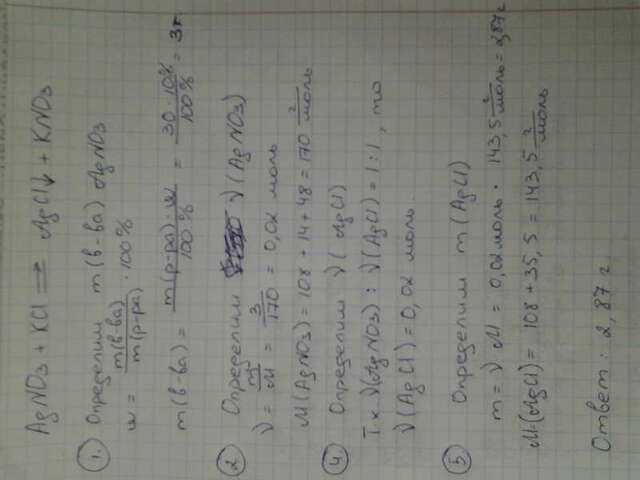 AgNO3 + KCl = AgCl↓ + KNO3
1. Определим m(в-ва) AgNO3
w = m(в-ва) / m(р-ра) · 100%
m(в-ва) = m(р-ра)·w / 100% = 30·10% / 100% = 3г
2 Определим ν(AgNO3)
ν = m / M = 3 / 170 = 0,02 моль
M(AgNO3) = 108 + 14 + 48 = 170 г/моль
4 Определим ν(AgCl)
Т.к ν(AgNO3) : ν(AgCl) = 1:1, то
ν(AgCl) = 0,02 моль
5 Определим m(AgCl)
m = ν M = 0,02 моль · 143,5 г/моль = 2,87 г
M(AgCl) = 108 + 35,5 = 143,5 г/моль
Ответ: 2,87 г